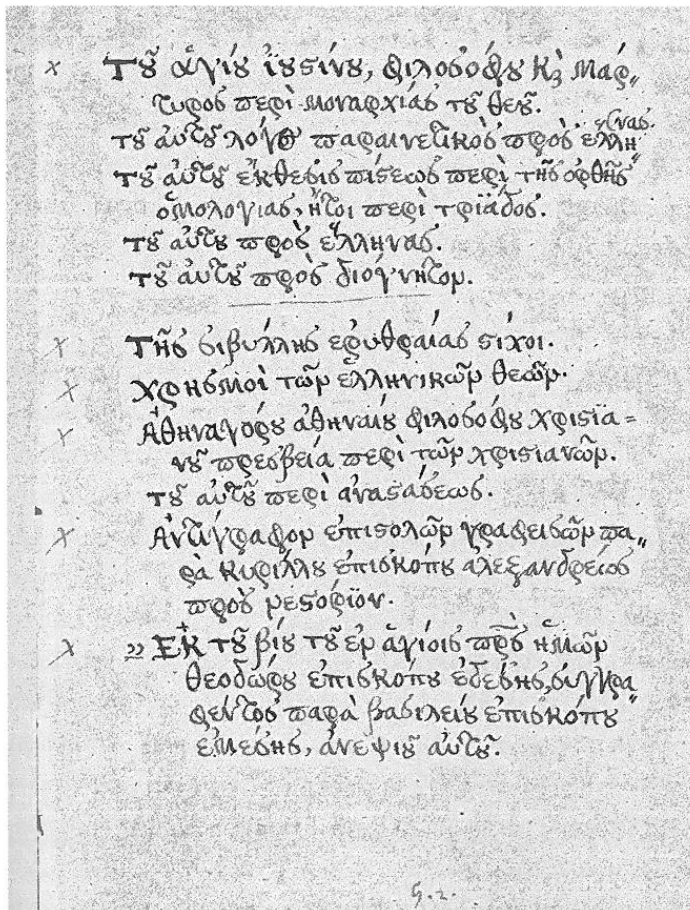 Τȣ̃ ἁγίȣ ἰȣϛίνȣ, φιλοσόφȣ κ̀ μάρ„
τυρος περὶ μοναρχίας τȣ̃ θεȣ̃.
τȣ̃ αὐτȣ̃ λόγος παραινετικὸς πρὸς ἕλληνας.
τȣ̃ αὐτȣ̃ ἔκθεσις πίϛεως περὶ τῆς ὀρθῆς
ὁμολογίας, ἤτοι περὶ τριάδος.
τȣ̃ αὐτȣ̃ πρὸς ἕλληνας.
τȣ̃ αὐτȣ̃ πρὸς διόγνητον.
Τῆς σιβύλλης ἐρυθραίας ϛίχοι.
χρησμοὶ τῶν ἑλληνικῶν θεῶν.
Ἀθηναγόρȣ ἀθηναίȣ φιλοσόφȣ χριϛϊα=
νȣ̃ πρεσβεία περὶ τῶν χριϛιανῶν.
τȣ̃ αὐτȣ̃ περὶ ἀναϛάσεως.
Ἀντίγραφον ἐπιϛολῶν γραφεισῶν πα„
ρὰ κυρίλλȣ ἐπισκόπȣ ἀλεξανδρείας
πρὸς νεϛόριον.
» Ἐκ τȣ̃ βίȣ τȣ̃ ἐν ἁγίοις πρ̅ς ἡμῶν
θεοδώρȣ ἐπισκόπȣ ἐδέσης, συγγρα„
φέντος παρὰ βασιλείȣ ἐπισκόπȣ
ἐμέσης, ἀνεψιȣ̃ αὐτȣ̃.